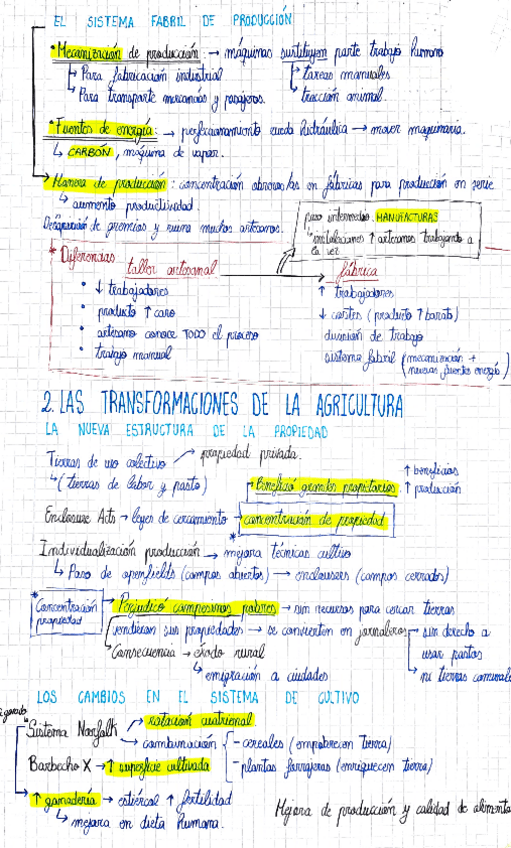 EL SISTEMA FABRIL DE PRODUCCIÓN
• Mecanización de producción → máquinas sustituyen parte trabajo humano
↳ Para fabricación industrial
↳ tareas manuales
↳ Para transporte mercancías y pasajeros.
↳ tracción animal.
• Fuentes de energía: → perfeccionamiento rueda hidráulica → mover maquinaria.
↳ CARBÓN, máquina de vapor.
→ Manera de producción: concentración obreros/as en fábricas para producción en serie
↳ aumento productividad.
Desaparición de gremios y ruina muchos artesanos.
paso intermedio: MANUFACTURAS
instalaciones ↑ artesanos trabajando a
la vez
* Diferencias
taller artesanal → fábrica
• ↓ trabajadores
• producto ↑ caro
• artesano conoce TODO el proceso
• trabajo manual
↑ trabajadores
↓ costes (producto ↑ barato)
división de trabajo
sistema fabril (mecanización +
nuevas fuentes energía)
2. LAS TRANSFORMACIONES DE LA AGRICULTURA
LA NUEVA ESTRUCTURA DE LA PROPIEDAD
Tierras de uso colectivo → propiedad privada.
↳ (tierras de labor y pasto)
Benefició grandes propietarios. ↑ beneficios
↑ producción
Enclosure Acts → leyes de cercamiento → concentración de propiedad
*
Individualización producción → mejora técnicas cultivo
↳ Paso de openfields (campos abiertos) → enclousers (campos cerrados)
* Concentración propiedad
→ Perjudicó campesinos pobres → sin recursos para cercar tierras
vendieron sus propiedades → se convierten en jornaleros → sin derecho a
usar pastos
↳ ni tierras comunales
Consecuencia → éxodo rural
↳ emigración a ciudades
LOS CAMBIOS EN EL SISTEMA DE CULTIVO
Sistema Norfolk → rotación cuatrienal.
→ combinación { - cereales (empobrecen tierra)
- plantas forrajeras (enriquecen tierra)
Barbecho X → ↑ superficie cultivada
→ ↑ ganadería → estiércol ↑ fertilidad
↳ mejora en dieta humana.
Mejora de producción y calidad de alimento